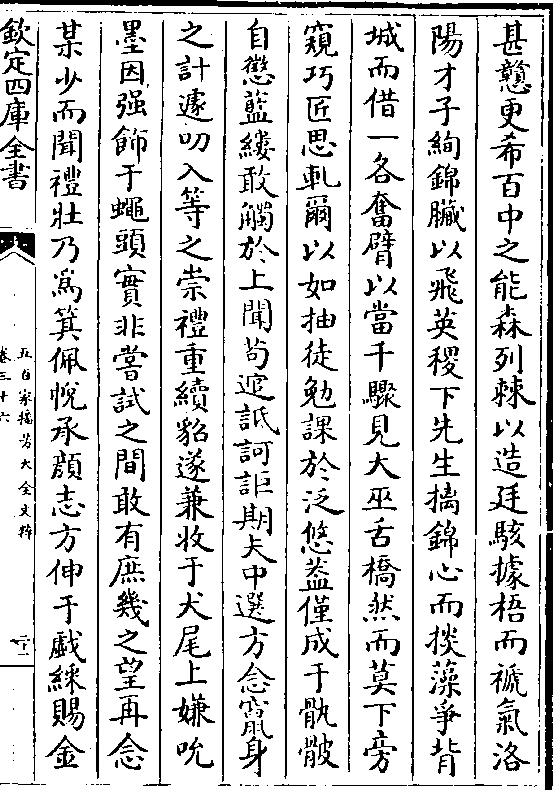 甚戇更希百中之能森列棘以造廷駭據梧而褫氣洛
陽才子絢錦臟以飛英稷下先生摛錦心而掞藻爭背
城而借一各奮臂以當千驟見大巫舌橋然而莫下旁
窺巧匠思軋爾以如抽徒勉課於泛悠葢僅成于骩骳
自慙藍縷敢觸於上聞茍逭詆訶詎期夫中選方念竄身
之計遽叨入等之崇禮重續貂遂兼收于犬尾上嫌吮
墨因强飾于蠅頭實非嘗試之間敢有庶幾之望再念
某少而聞禮壯乃爲箕佩帨承顔志方伸于戱綵賜金
欽定四庫全書
五百家播芳大全文粹
卷三十六